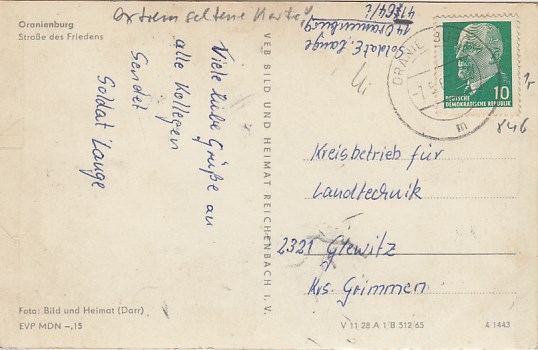 Oranenburg
Straße des Friedens
extrem seltene Karte
Viele liebe Grüße an
alle Kollegen
Sendet
Soldat Lange
Foto: Bild und Heimat (Darr)
EVP MDN –,15
VEB BILD UND HEIMAT REICHENBACH i. V.
Soldat E. Lange
14 Oranienburg
DEUTSCHE
DEMOKRATISCHE REPUBLIK
10
m
846
Kreisbetrieb für
Landtechnik
2321 Glewitz
Krs. Grimmen
V 11 28 A 1 B 512/65
4/1443